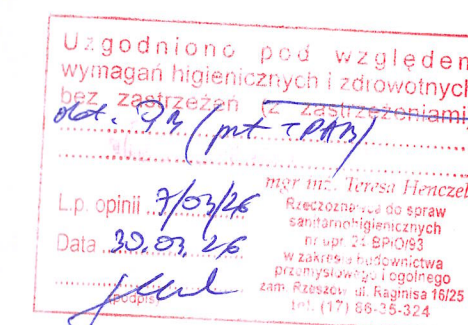 Uzgodniono pod względem
wymagań higienicznych i zdrowotnych
bez zastrzeżeń (z zastrzeżeniami)
dot. PB (prt TPAB)
L.p. opinii 7/03/26
Data 30.03.26
podpis
mgr inż. Teresa Henczel
Rzeczoznawca do spraw
sanitarnohigienicznych
nr upr. 24 BPiO/93
w zakresie budownictwa
przemysłowego i ogólnego
zam. Rzeszów ul. Raginisa 16/25
tel. (17) 86-35-324